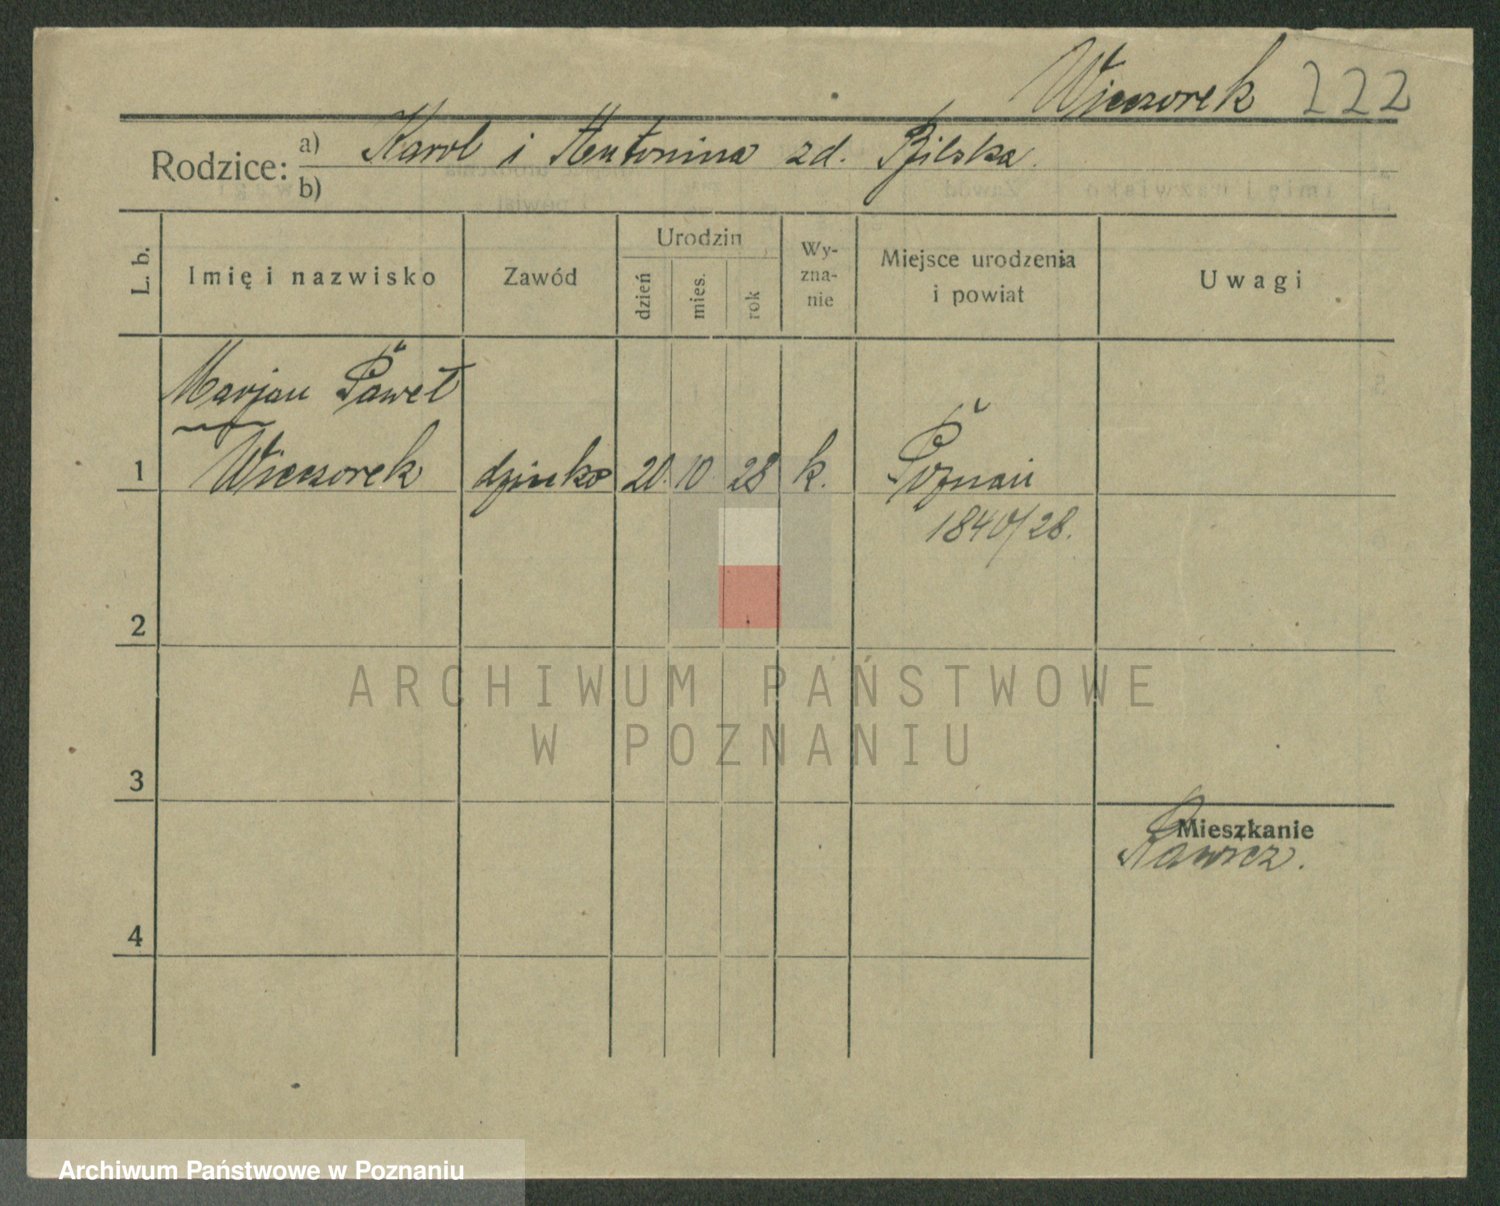 Wieczorek 222
Rodzice: a) Karol i Antonina zd. Bilska.
b)
L. b.
Imię i nazwisko
Zawód
Urodzin
dzień
mies.
rok
Wy-
zna-
nie
Miejsce urodzenia
i powiat
Uwagi
Marjan Paweł
1 Wieczorek dziecko 20. 10. 28 k. Poznań
1840/28.
2
3
Mieszkanie
Rawicz.
4
ARCHIWUM PAŃSTWOWE
W POZNANIU
Archiwum Państwowe w Poznaniu